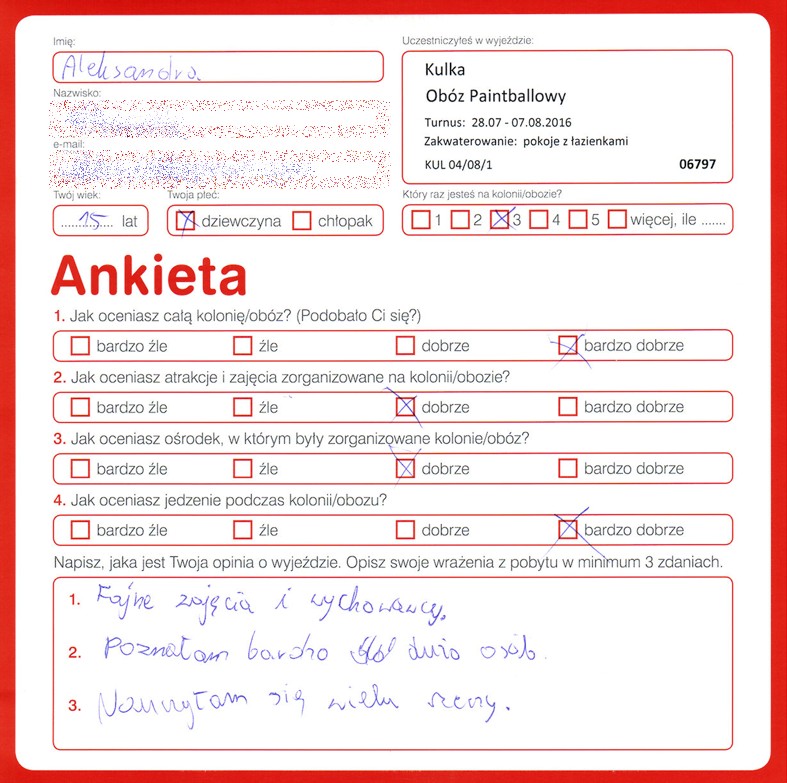 Imię:
Aleksandra
Uczestniczyłeś w wyjeździe:
Kulka
Obóz Paintballowy
Turnus: 28.07 - 07.08.2016
Zakwaterowanie: pokoje z łazienkami
KUL 04/08/1 06797
Nazwisko:
e-mail:
Twój wiek:
15 lat
Twoja płeć:
dziewczyna chłopak
Który raz jesteś na kolonii/obozie?
1 2 3 4 5 więcej, ile .......
Ankieta
1. Jak oceniasz całą kolonię/obóz? (Podobało Ci się?)
bardzo źle źle dobrze bardzo dobrze
2. Jak oceniasz atrakcje i zajęcia zorganizowane na kolonii/obozie?
bardzo źle źle dobrze bardzo dobrze
3. Jak oceniasz ośrodek, w którym były zorganizowane kolonie/obóz?
bardzo źle źle dobrze bardzo dobrze
4. Jak oceniasz jedzenie podczas kolonii/obozu?
bardzo źle źle dobrze bardzo dobrze
Napisz, jaka jest Twoja opinia o wyjeździe. Opisz swoje wrażenia z pobytu w minimum 3 zdaniach.
1. Fajne zajęcia i wychowawcy.
2. Poznałam bardzo dużo osób.
3. Nauczyłam się wielu rzeczy.